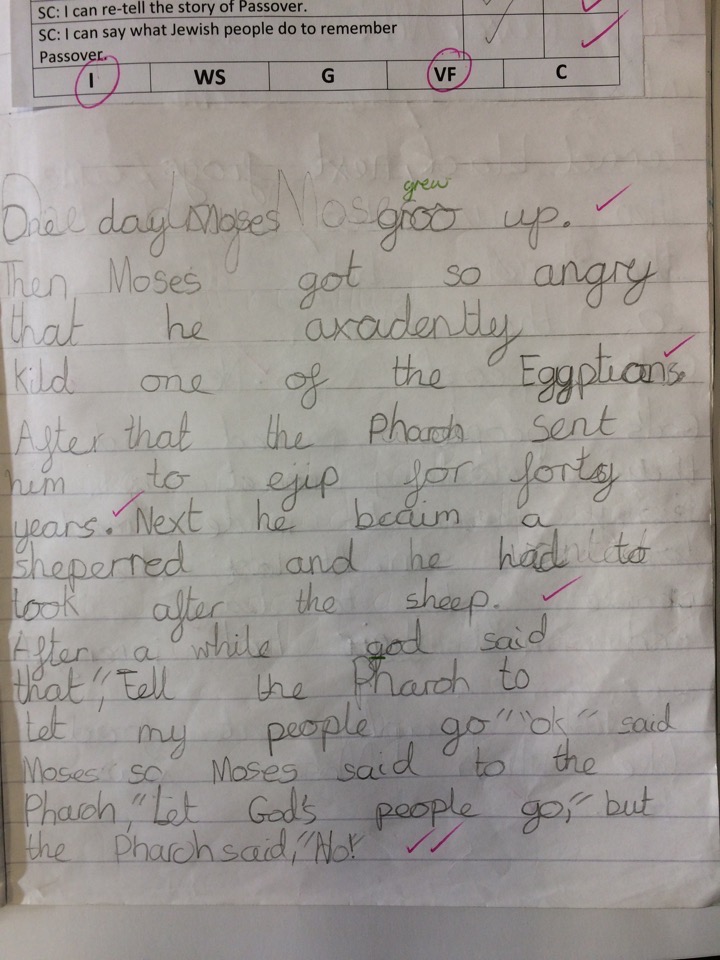 SC: I can re-tell the story of Passover.
SC: I can say what Jewish people do to remember
Passover.
I WS G VF C
grew
One day Moses groo up.
Then Moses got so angry
that he axadently
kild one of the Egyptians.
After that the Pharoh sent
him to ejip for forty
years. Next he bcaim a
sheperred and he had to
look after the sheep.
After a while god said
that", Tell the Pharoh to
let my people go" "ok" said
Moses so Moses said to the
Pharoh, "Let God's people go," but
the Pharoh said, "No!"